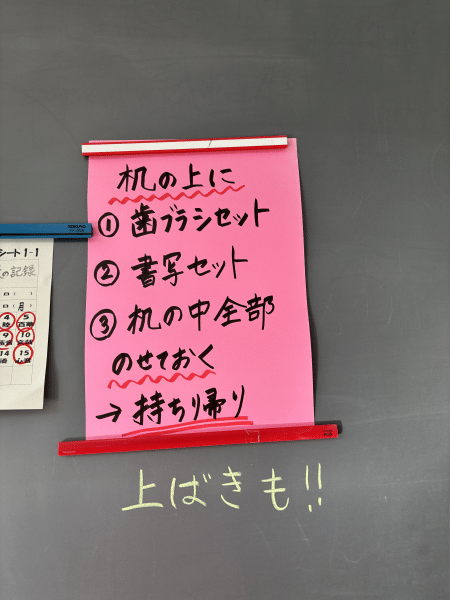 机の上に
① 歯ブラシセット
② 書写セット
③ 机の中全部
のせておく
→ 持ち帰り
上ばきも!!
シート1-1
の記録
日 ( )
月
4 5
9 10
14 15